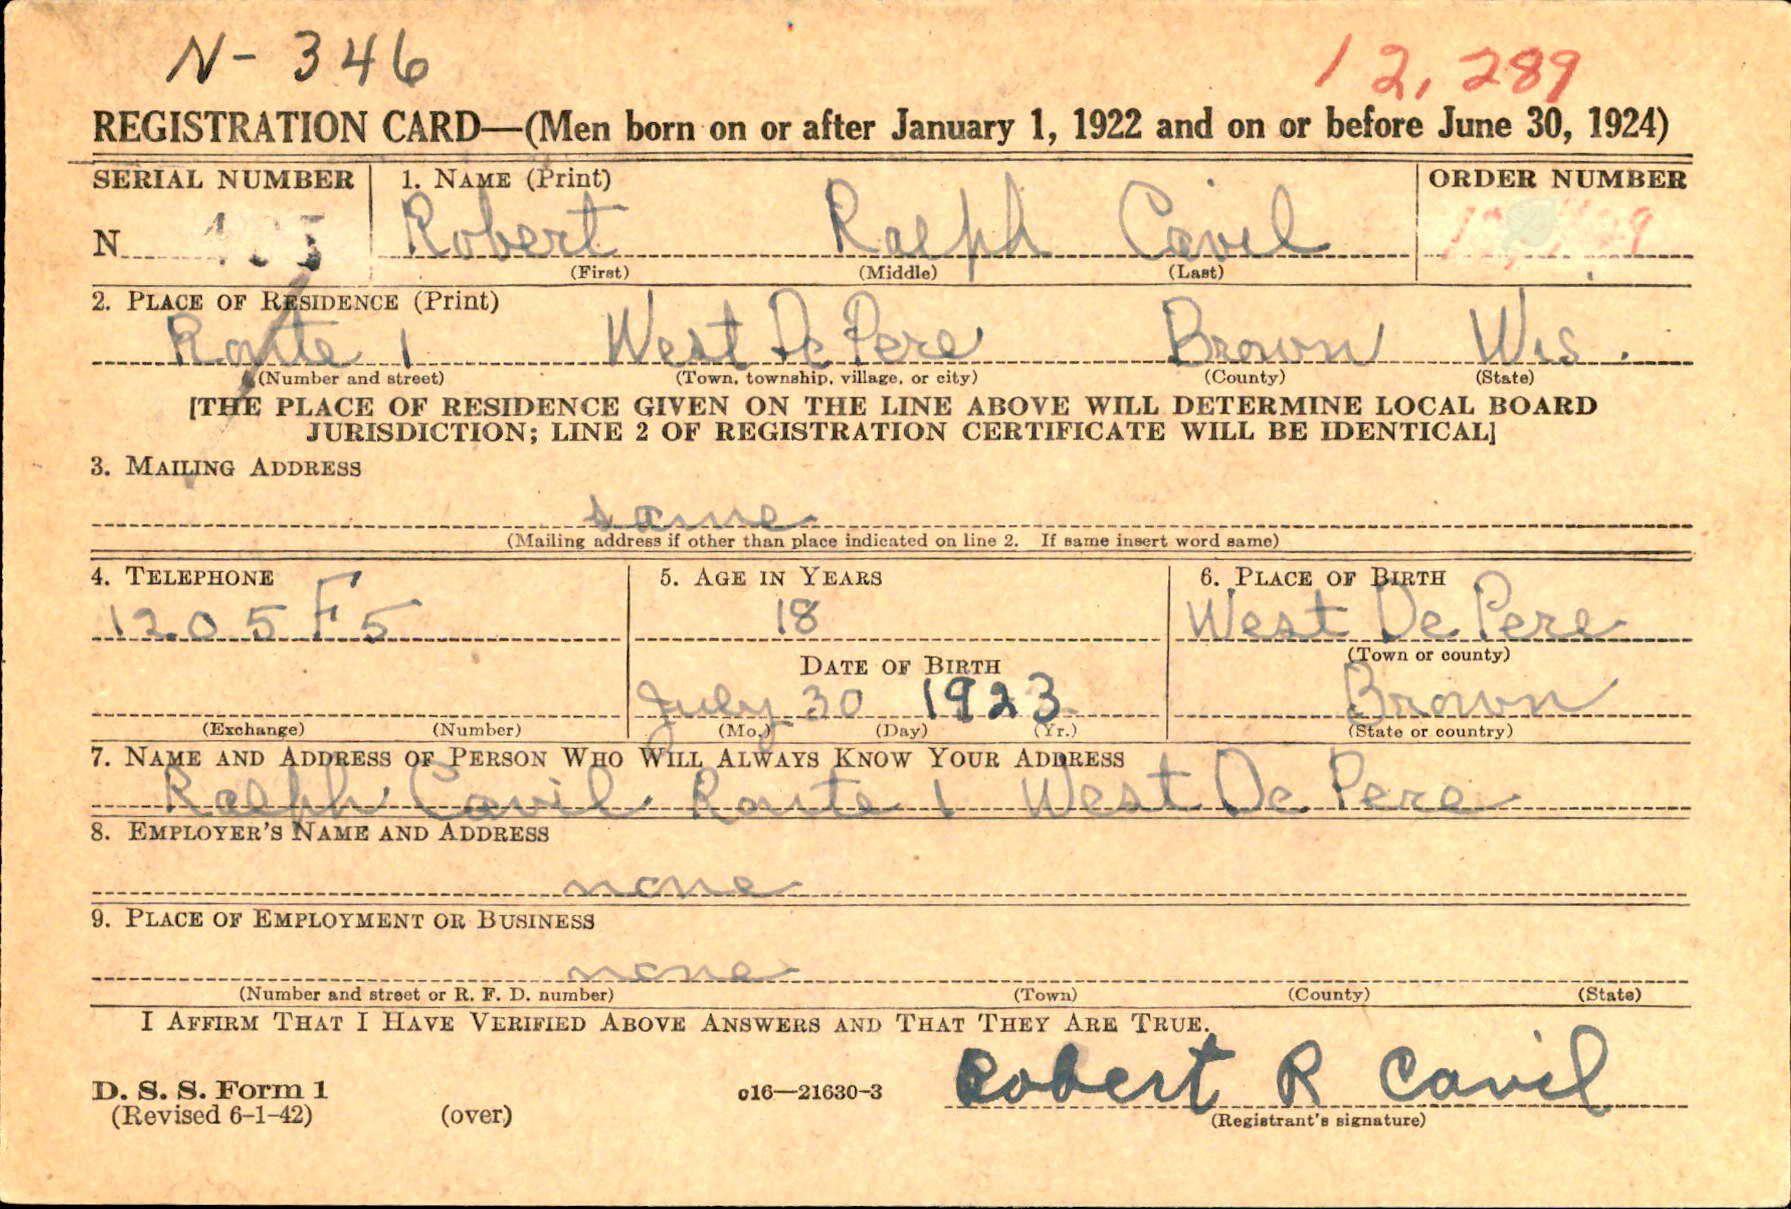 N- 346
12,289
REGISTRATION CARD—(Men born on or after January 1, 1922 and on or before June 30, 1924)
SERIAL NUMBER
1. NAME (Print)
ORDER NUMBER
N
Robert Ralph Cavil
(First) (Middle) (Last)
2. PLACE OF RESIDENCE (Print)
Route 1 West De Pere Brown Wis.
(Number and street) (Town, township, village, or city) (County) (State)
[THE PLACE OF RESIDENCE GIVEN ON THE LINE ABOVE WILL DETERMINE LOCAL BOARD
JURISDICTION; LINE 2 OF REGISTRATION CERTIFICATE WILL BE IDENTICAL]
3. MAILING ADDRESS
same
(Mailing address if other than place indicated on line 2. If same insert word same)
4. TELEPHONE
1205 F5
(Exchange) (Number)
5. AGE IN YEARS
18
DATE OF BIRTH
July 30 1923
(Mo.) (Day) (Yr.)
6. PLACE OF BIRTH
West De Pere
(Town or county)
Brown
(State or country)
7. NAME AND ADDRESS OF PERSON WHO WILL ALWAYS KNOW YOUR ADDRESS
Ralph Cavil Route 1 West De Pere
8. EMPLOYER'S NAME AND ADDRESS
none
9. PLACE OF EMPLOYMENT OR BUSINESS
none
(Number and street or R. F. D. number) (Town) (County) (State)
I AFFIRM THAT I HAVE VERIFIED ABOVE ANSWERS AND THAT THEY ARE TRUE.
D. S. S. Form 1
(Revised 6-1-42)
(over)
c16—21630-3
Robert R Cavil
(Registrant's signature)